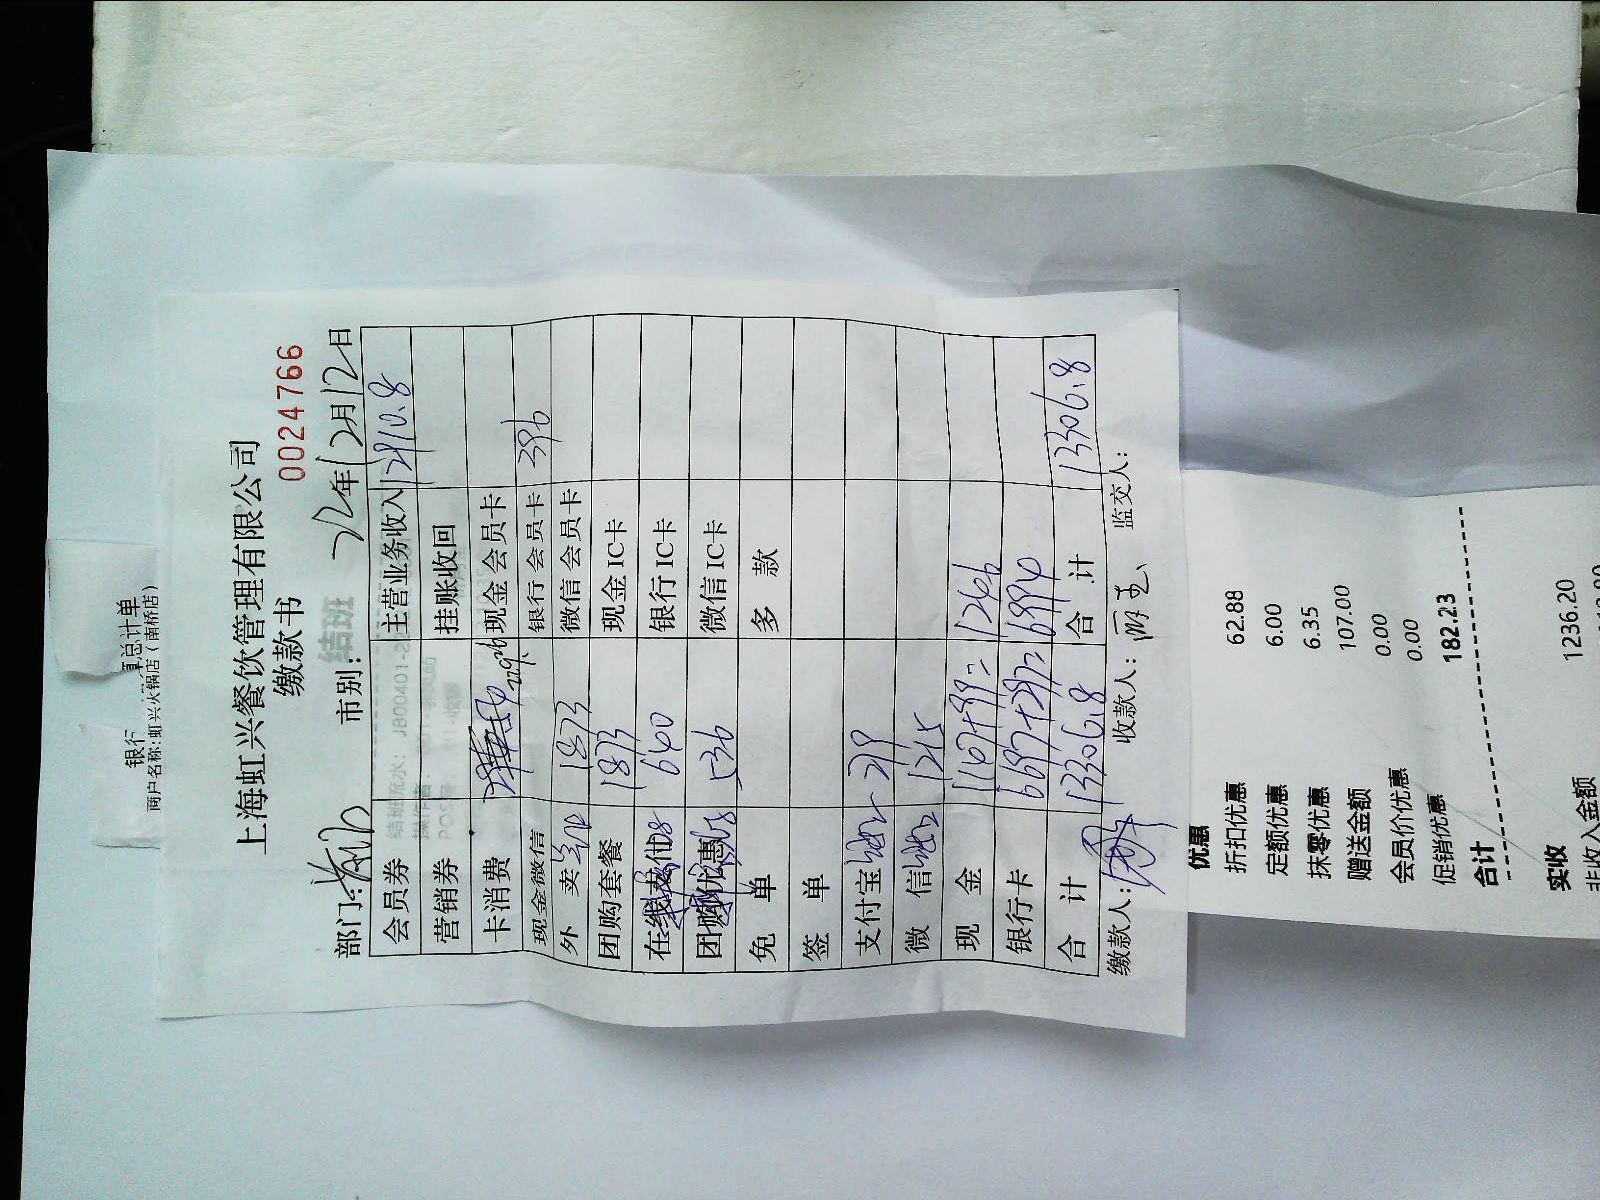 银行
单总计单
商户名称:虹兴火锅店(南桥店)
上海虹兴餐饮管理有限公司
缴款书
0024766
部门: 市别: 22年12月12日
会员券 主营业务收入 12910.8
营销券 挂账收回
卡消费 现金会员卡
现金微信 银行会员卡 396
外卖 1873 微信会员卡
团购套餐 1873 现金IC卡
640 银行IC卡
536 微信IC卡
免单 多款
签单
支付宝 219
微信 1215
现金 1147+99= 1246
银行卡 6697+297= 6994
合计 13306.8 合计 13306.8
缴款人: 收款人: 监交人:
优惠
折扣优惠 62.88
定额优惠 6.00
抹零优惠 6.35
赠送金额 107.00
会员价优惠 0.00
促销优惠 0.00
合计 182.23
实收 1236.20
非收入金额